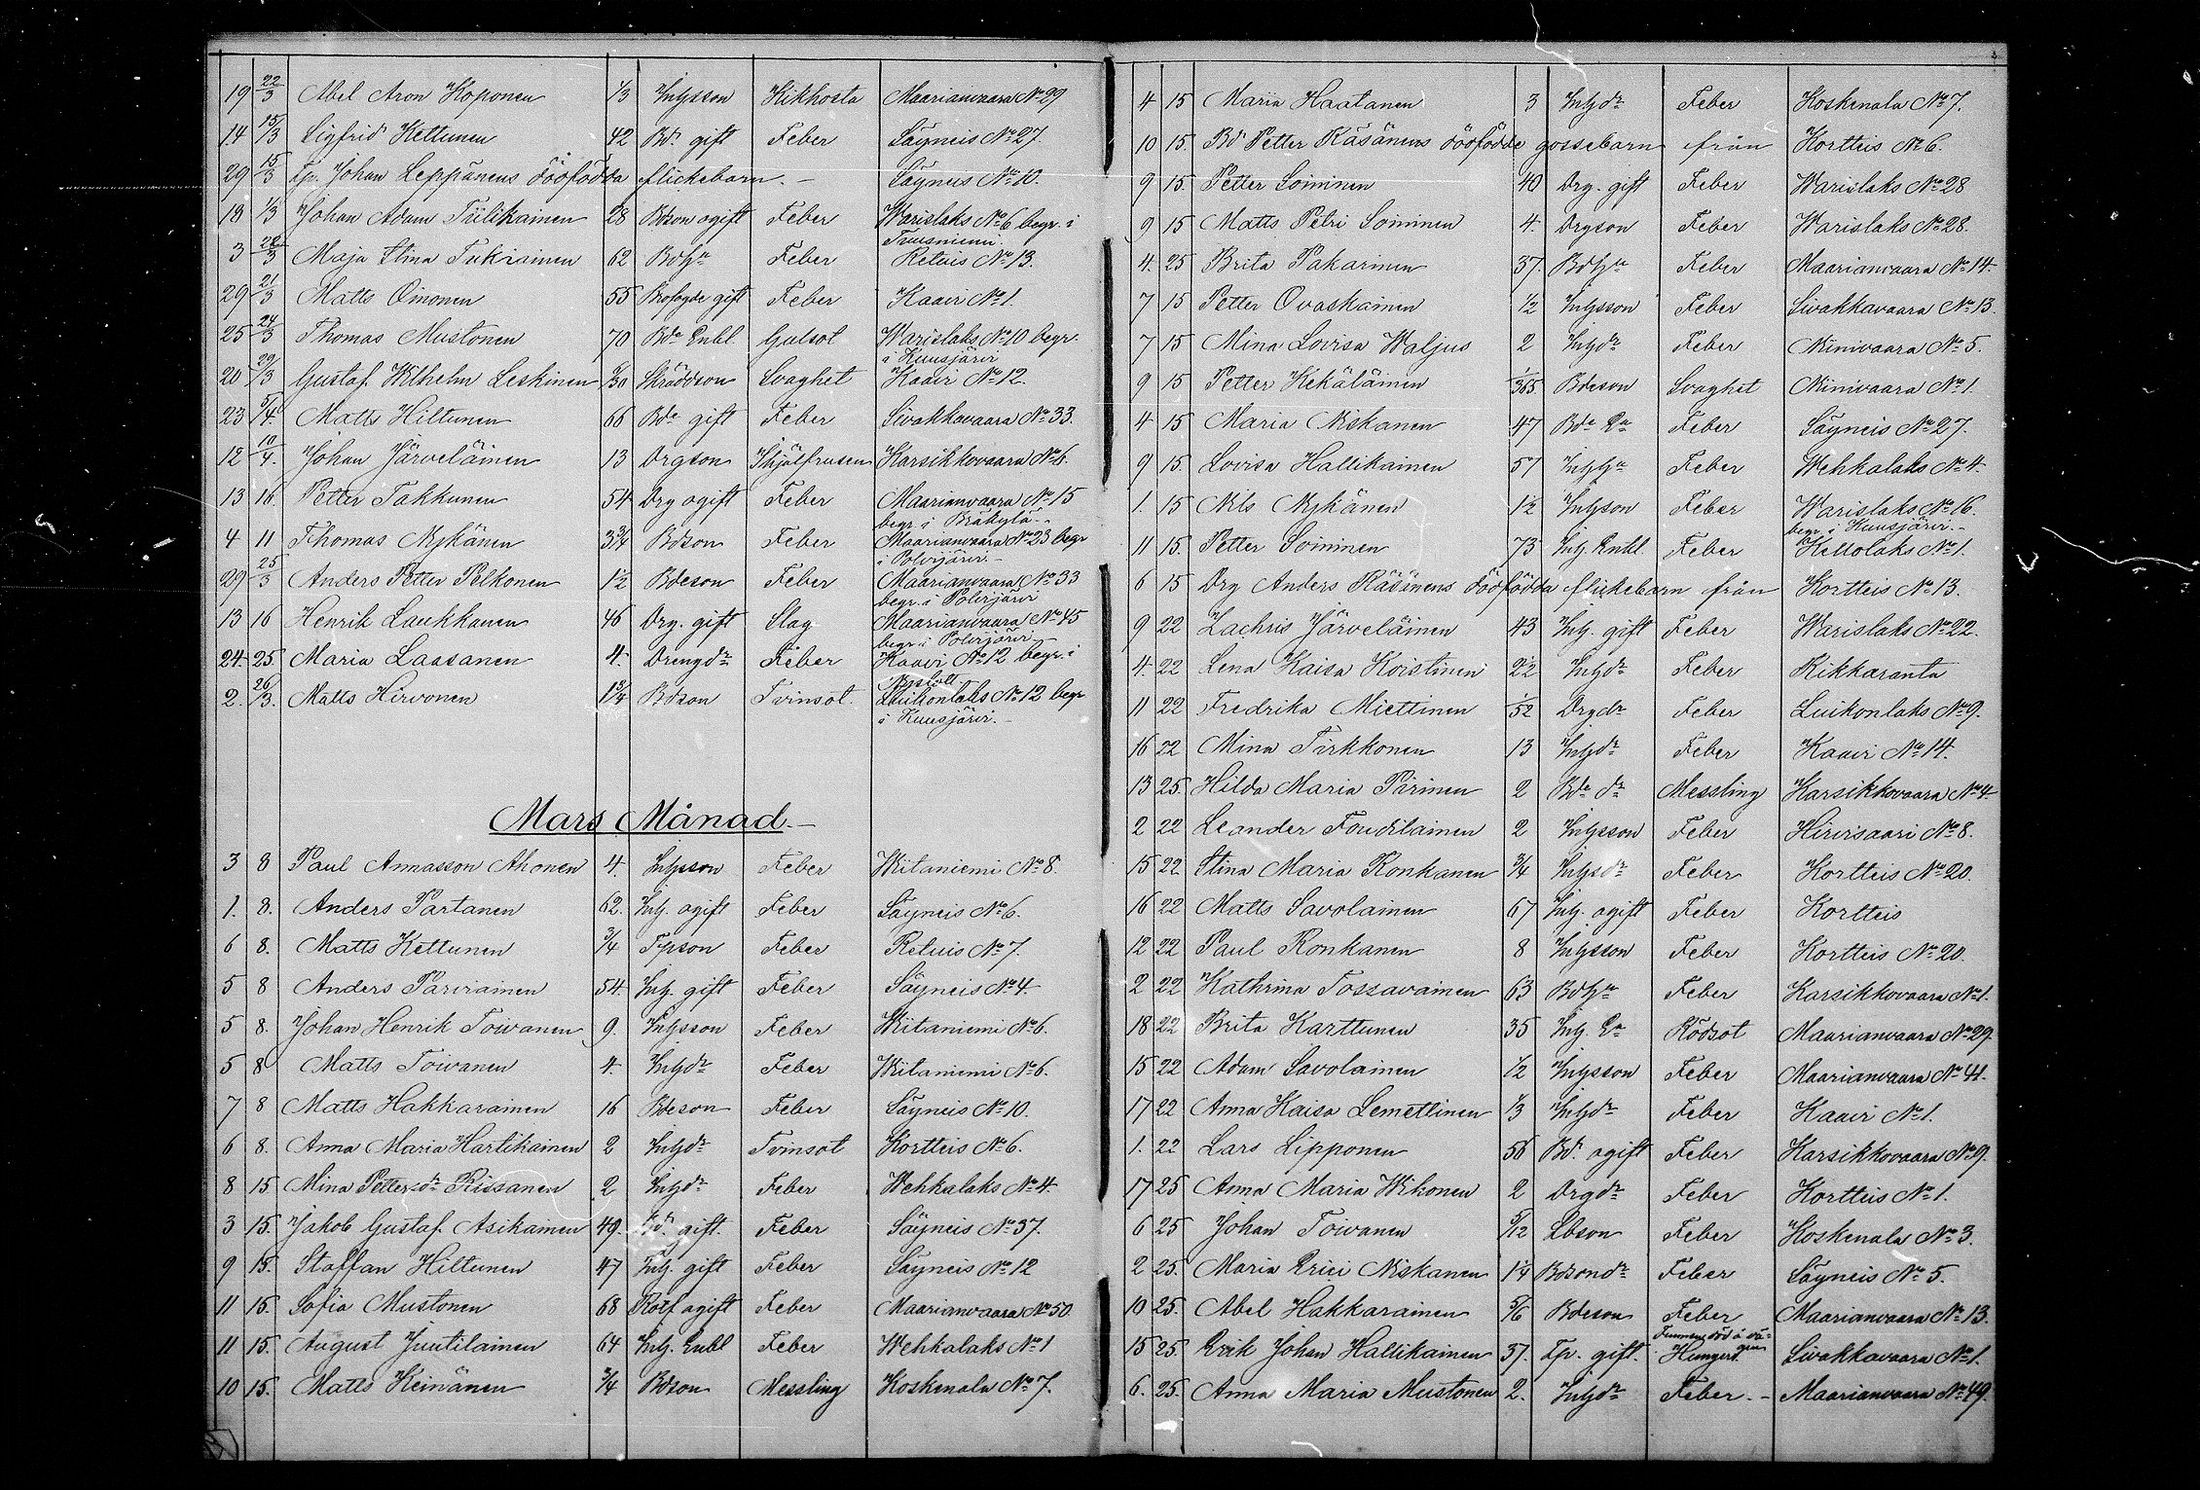 19 22/3 Abel Aron Koponen 1/3 Inhysson Kikhosta Maarianvaara No 29
14 15/3 Sigfrid Kettunen 42 Bd. gift Feber Säyneis No 27.
29 15/3 Tp. Johan Leppänens dödfödda flickebarn. — Säyneis No 10.
18 1/3 Johan Adam Tiilikainen 28 Bdson ogift Feber Warislaks No 6 begr. i
Tuusniemi.
3 28/3 Maja Stina Tukiainen 62 Bdha Feber Retuis No 13.
29 21/3 Matts Oinonen 55 Bofogde gift Feber Kaavi No 1.
25 24/3 Thomas Mustonen 70 Bde Enkl Gulsot Warislaks No 10 begr.
i Kuusjärvi
20 29/3 Gustaf Wilhelm Leskinen Skräddson Svaghet Kaavi No 12.
23 5/4 Matts Hiltunen 66 Bde gift Feber Sivakkavaara No 33.
12 10/4. Johan Järveläinen 13 Drgson Ihjälfrusen Karsikkovaara No 6.
13 16. Petter Takkunen 54 Drg ogift Feber Maarianvaara No 15
begr. i Bräkylä. -
4 11 Thomas Nykänen 3 3/4 Bdson Feber Maarianvaara No 23 begr
i Polvijärvi. —
29 25/3 Anders Petter Pelkonen 1 1/2 Bdeson Feber Maarianvaara No 33
begr. i Polvijärvi
13 16 Henrik Laukkanen 46 Drg. gift Slag Maarianvaara No 45
begr i Polvijärvi —
24 25 Maria Laasanen 4. Drengdr Feber Kaavi No 12 begr. i
2. 26/3. Matts Hirvonen 1 3/4 Bdson Tvinsot. Luikonlaks No 12 begr
i Kuusjärvi. —
Mars Månad. —
3 8 Paul Annasson Ahonen 4. Inhysson Feber Witaniemi No 8.
1. 8. Anders Partanen 62. Inh. ogift Feber Säyneis No 6.
6 8. Matts Kettunen 3/4 Tpson Feber Retuis No 7.
5 8 Anders Parviainen 54. Inh. gift Feber Säyneis No 4.
5 8. Johan Henrik Toivanen 9. Inhysson Feber Witaniemi No 6.
5 8 Matts Toivanen 4. Inhdr Feber Witaniemi No 6.
7 8 Matts Hakkarainen 16 Bdeson Feber Säyneis No 10.
6 8. Anna Maria Hartikainen 2 Inhdr Tvinsot Kortteis No 6.
8 15 Mina Petter dr Rissanen 2 Inhdr Feber Wehkalaks No 4.
3 15. Jakob Gustaf Asikainen 49. Bd. gift. Feber Säyneis No 37.
9 15. Staffan Hiltunen 47 Inh. gift Feber Säyneis No 12
11 15. Sofia Mustonen 68 Rotf ogift Feber Maarianvaara No 50.
11 15. August Juutilainen 64 Inh. Enkl Feber Wehkalaks No 1
10 15. Matts Keinänen 3/4 Bdson Messling Koskenala No 7.
4 15 Maria Haatanen 3 Inhdr Feber Koskenala No 7.
10 15. Bd Petter Räsänens dödfödde gossebarn från Kortteis No 6.
9 15. Petter Soininen 40 Drg. gift Feber Warislaks No 28
9 15 Matts Petri Soininen 4. Drgson Feber Warislaks No 28.
4. 25 Brita Pakarinen 37. Bdha Feber Maarianvaara No 14.
7 15 Petter Ovaskainen 1/2 Inhysson Feber Sivakkavaara No 13.
7 15 Mina Lovisa Waljus 2 Inhdr Feber Niinivaara No 5.
9 15 Petter Kekäläinen 1/365 Bdeson Svaghet Niinivaara No 1.
4 15 Maria Niskanen 47 Bde Ea Feber Säyneis No 27.
9 15. Lovisa Hallikainen 57 Inhha Feber Wehkalaks No 4.
1. 15 Nils Nykänen 1/2 Inhyson Feber Warislaks No 16.
begr. i Kuusjärvi. —
11 15. Petter Soininen 73 Inh. Enkl. Feber Keltolaks No 1.
6 15 Drg Anders Räsänens dödfödda flickebarn från Kortteis No 13.
9 22 Zachris Järveläinen 43 Inh. gift Feber Warislaks No 22.
4. 22 Lena Kaisa Koistinen 2 1/2 Inhdr Feber Rikkaranta
11 22 Fredrika Miettinen 1/52 Drgdr Feber Luikonlaks No 9.
16 22 Mina Tirkkonen 13 Inhdr Feber Kaavi No 14.
13 25. Hilda Maria Pärinen 2 Bde dr Messling Karsikkovaara No 4
2 22 Leander Toudilainen 2 Inhysson Feber Hirvisaari No 8.
15 22 Stina Maria Ronkanen 3/4 Inhysdr Feber Kortteis No 20.
16 22 Matts Savolainen 67 Inh. ogift Feber Kortteis
12 22 Paul Ronkanen 8 Inhysson Feber Kortteis No 20.
2 22 Kathrina Tossavainen 63 Bdha Feber Karsikkovaara No 1.
18 22 Brita Karttunen 35 Inh. Ea Rödsot Maarianvaara No 29.
15 22 Adam Savolainen 1/2 Inhysson Feber Maarianvaara No 41.
17 22 Anna Kaisa Lemettinen 1/3 Inhdr Feber Kaavi No 1.
1. 22 Lars Lipponen 56 Bd. ogift Feber Karsikkovaara No 9.
17 25 Anna Maria Wikonen 2 Drgdr Feber Kortteis No 1.
6 25 Johan Toivanen 5/12 Lbson Feber Koskenala No 3.
2 25. Maria Erici Niskanen 1/4 Bdsondr Feber Säyneis No 5.
10 25. Abel Hakkarainen 5/6 Bdeson Feber Maarianvaara No 13.
15 25. Erik Johan Hallikainen 37. Tp. gift. Funnen död å vä-
gen Hunger. Sivakkavaara No 1.
6. 25. Anna Maria Mustonen 2. Inhdr Feber. — Maarianvaara No 49.